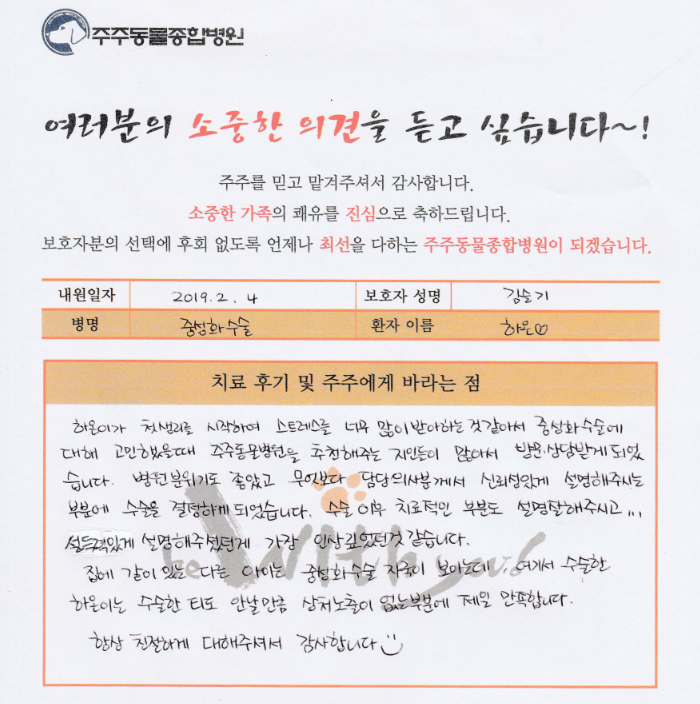 주주동물종합병원
여러분의 소중한 의견을 듣고 싶습니다~!
주주를 믿고 맡겨주셔서 감사합니다.
소중한 가족의 쾌유를 진심으로 축하드립니다.
보호자분의 선택에 후회 없도록 언제나 최선을 다하는 주주동물종합병원이 되겠습니다.
내원일자 2019. 2. 4 보호자 성명 김슬기
병명 중성화수술 환자 이름 하온♡
치료 후기 및 주주에게 바라는 점
하온이가 첫생리를 시작하여 스트레스를 너무 많이받아하는것같아서 중성화수술에
대해 고민했을때 주주동물병원을 추천해주는 지인들이 많아서 방문.상담받게되었
습니다. 병원분위기도 좋았고 무엇보다 담당의사분께서 신뢰성있게 설명해주시는
부분에 수술을 결정하게되었습니다. 수술이후 치료적인 부분도 설명잘해주시고...
설득력있게 설명해주셨던게 가장 인상깊었던것 같습니다.
집에 같이있는 다른 아이는 중성화수술 자국이 보이는데, 여기서 수술한
하온이는 수술한 티도 안날만큼 상처노출이 없는부분에 제일 만족합니다.
항상 친절하게 대해주셔서 감사합니다
be With you!